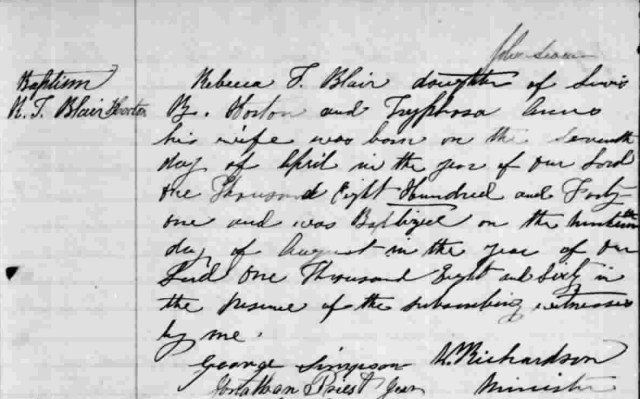 Baptism
R. T. Blair Horton
Rebecca T. Blair daughter of Lewis
B. Horton and Tryphosa Anns
his wife was born on the seventh
day of April in the year of Our Lord
One Thousand Eight Hundred and Forty
one and was Baptized on the nineteenth
day of August in the year of Our
Lord One Thousand Eight and Sixty in
the presence of the subscribing witnesses
by me.
George Simpson K. Richardson
Jonathan Priest Jun Minister